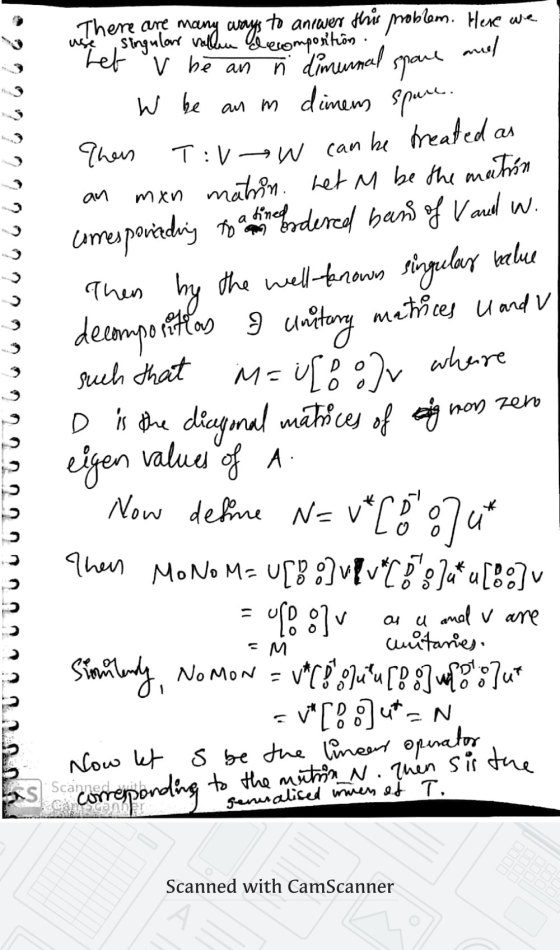 There are many ways to answer this problem. Here we
use singular value decomposition.
Let V be an n dimensional space and
W be an m dimens space.
Then T : V → W can be treated as
an m×n matrix. Let M be the matrix
corresponding to a fixed ordered basis of V and W.
Then by the well-known singular value
decomposition ∃ unitary matrices U and V
such that M = U[D 0 0 0]V where
D is the diagonal matrices of non zero
eigen values of A.
Now define N = V*[D⁻¹ 0 0 0]U*
Then MoNoM = U[D 0 0 0]V V*[D⁻¹ 0 0 0]U*U[D 0 0 0]V
= U[D 0 0 0]V as U and V are
= M unitaries.
Similarly, NoMoN = V*[D⁻¹ 0 0 0]U*U[D 0 0 0]V[D⁻¹ 0 0 0]U*
= V*[D 0 0 0]U* = N
Now let S be the linear operator
corresponding to the matrix N. Then S is the
generalised inverse of T.
CS Scanned with
CamScanner
Scanned with CamScanner